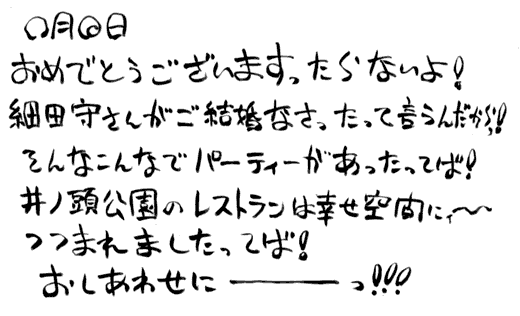 ○月○日
おめでとうございますったらないよ!
細田守さんがご結婚なさったって言うんだから!
そんなこんなでパーティーがあったってば!
井ノ頭公園のレストランは幸せ空間に〜
つつまれましたってば!
おしあわせに———っ!!!